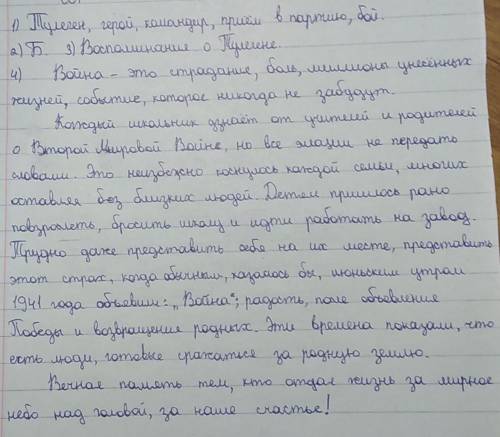 1) Тулеген, герой, командир, приём в партию, бой.
2) Б. 3) Воспоминание о Тулегене.
4) Война – это страдание, боль, миллионы унесённых
жизней, событие, которое никогда не забудут.
Каждый школьник узнаёт от учителей и родителей
о Второй Мировой Войне, но все эмоции не передать
словами. Это неизбежно коснулось каждой семьи, многих
оставляя без близких людей. Детям пришлось рано
повзрослеть, бросить школу и идти работать на завод.
Трудно даже представить себя на их месте, представить
этот страх, когда обычным, казалось бы, июньским утром
1941 года объявили: „Война"; радость, после объявления
Победы и возвращение родных. Эти времена показали, что
есть люди, готовые сражаться за родную землю.
Вечная память тем, кто отдал жизнь за мирное
небо над головой, за наше счастье!